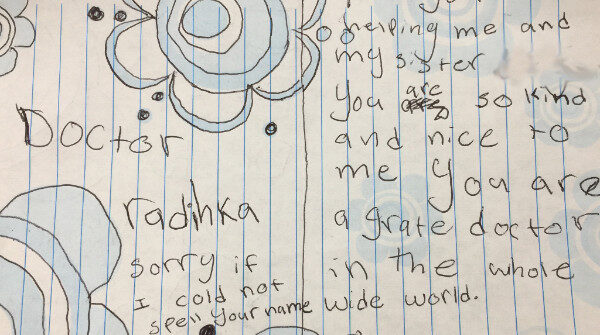 Doctor
radihka
sorry if
I cold not
spell your name
helping me and
my sister
you are so kind
and nice to
me you are
a grate doctor
in the whole
wide world.